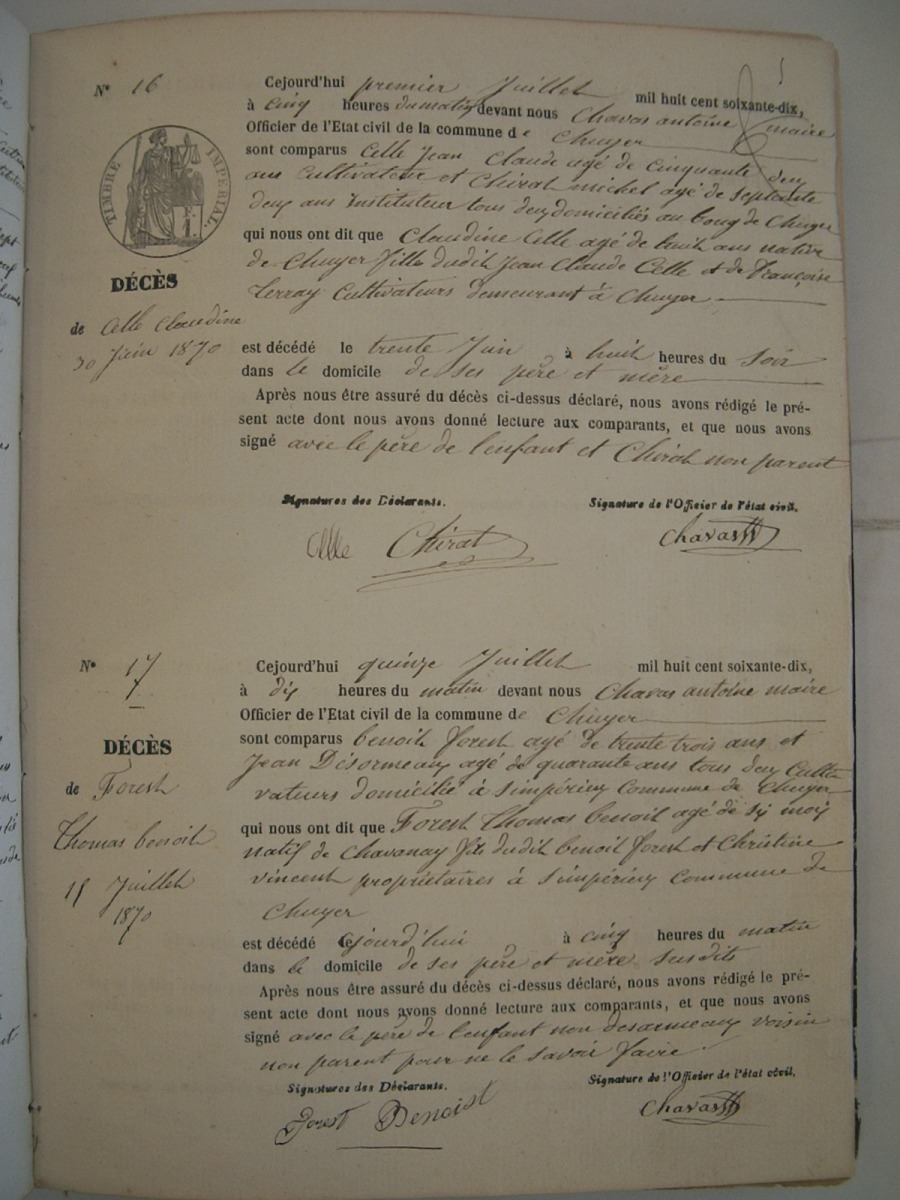 N° 16
TIMBRE IMPÉRIAL.
DÉCÈS
de Celle Claudine
30 Juin 1870
Cejourd'hui premier Juillet mil huit cent soixante-dix,
à cinq heures du matin, devant nous Chavas antoine maire
Officier de l'Etat civil de la commune de Chuyer
sont comparus Celle Jean Claude agé de cinquante deux
ans Cultivateur et Chirat michel agé de septante
deux ans Instituteur tous deux domiciliés au bourg de Chuyer
qui nous ont dit que Claudine Celle agé de huit ans native
de Chuyer fille dudit Jean Claude Celle et de Françoise
Cultivateurs demeurant à Chuyer
est décédé le trente Juin à huit heures du soir
dans le domicile de ses père et mère
Après nous être assuré du décès ci-dessus déclaré, nous avons rédigé le pré-
sent acte dont nous avons donné lecture aux comparants, et que nous avons
signé avec le père de l'enfant et Chirat non parent
Signatures des Déclarants.
Signature de l'Officier de l'état civil.
Celle Chirat
Chavas
N° 17
DÉCÈS
de Forest
Thomas benoit
15 Juillet
1870
Cejourd'hui quinze Juillet mil huit cent soixante-dix,
à dix heures du matin devant nous Chavas antoine maire
Officier de l'Etat civil de la commune de Chuyer
sont comparus benoit forest agé de trente trois ans et
Jean Désormeaux agé de quarante ans tous deux Culti
vateurs domicilié à simpérieux Commune de Chuyer
qui nous ont dit que Forest Thomas benoit agé de six mois
natif de Chavanay fils dudit benoit forest et Christine
vincent propriétaires à simpérieux Commune de
Chuyer
est décédé cejourd'hui à cinq heures du matin
dans le domicile de ses père et mère susdits
Après nous être assuré du décès ci-dessus déclaré, nous avons rédigé le pré-
sent acte dont nous avons donné lecture aux comparants, et que nous avons
signé avec le père de l'enfant non desormeaux voisin
non parent pour ne le savoir faire.
Signatures des Déclarants.
Signature de l'Officier de l'état civil.
Forest Benoist
Chavas